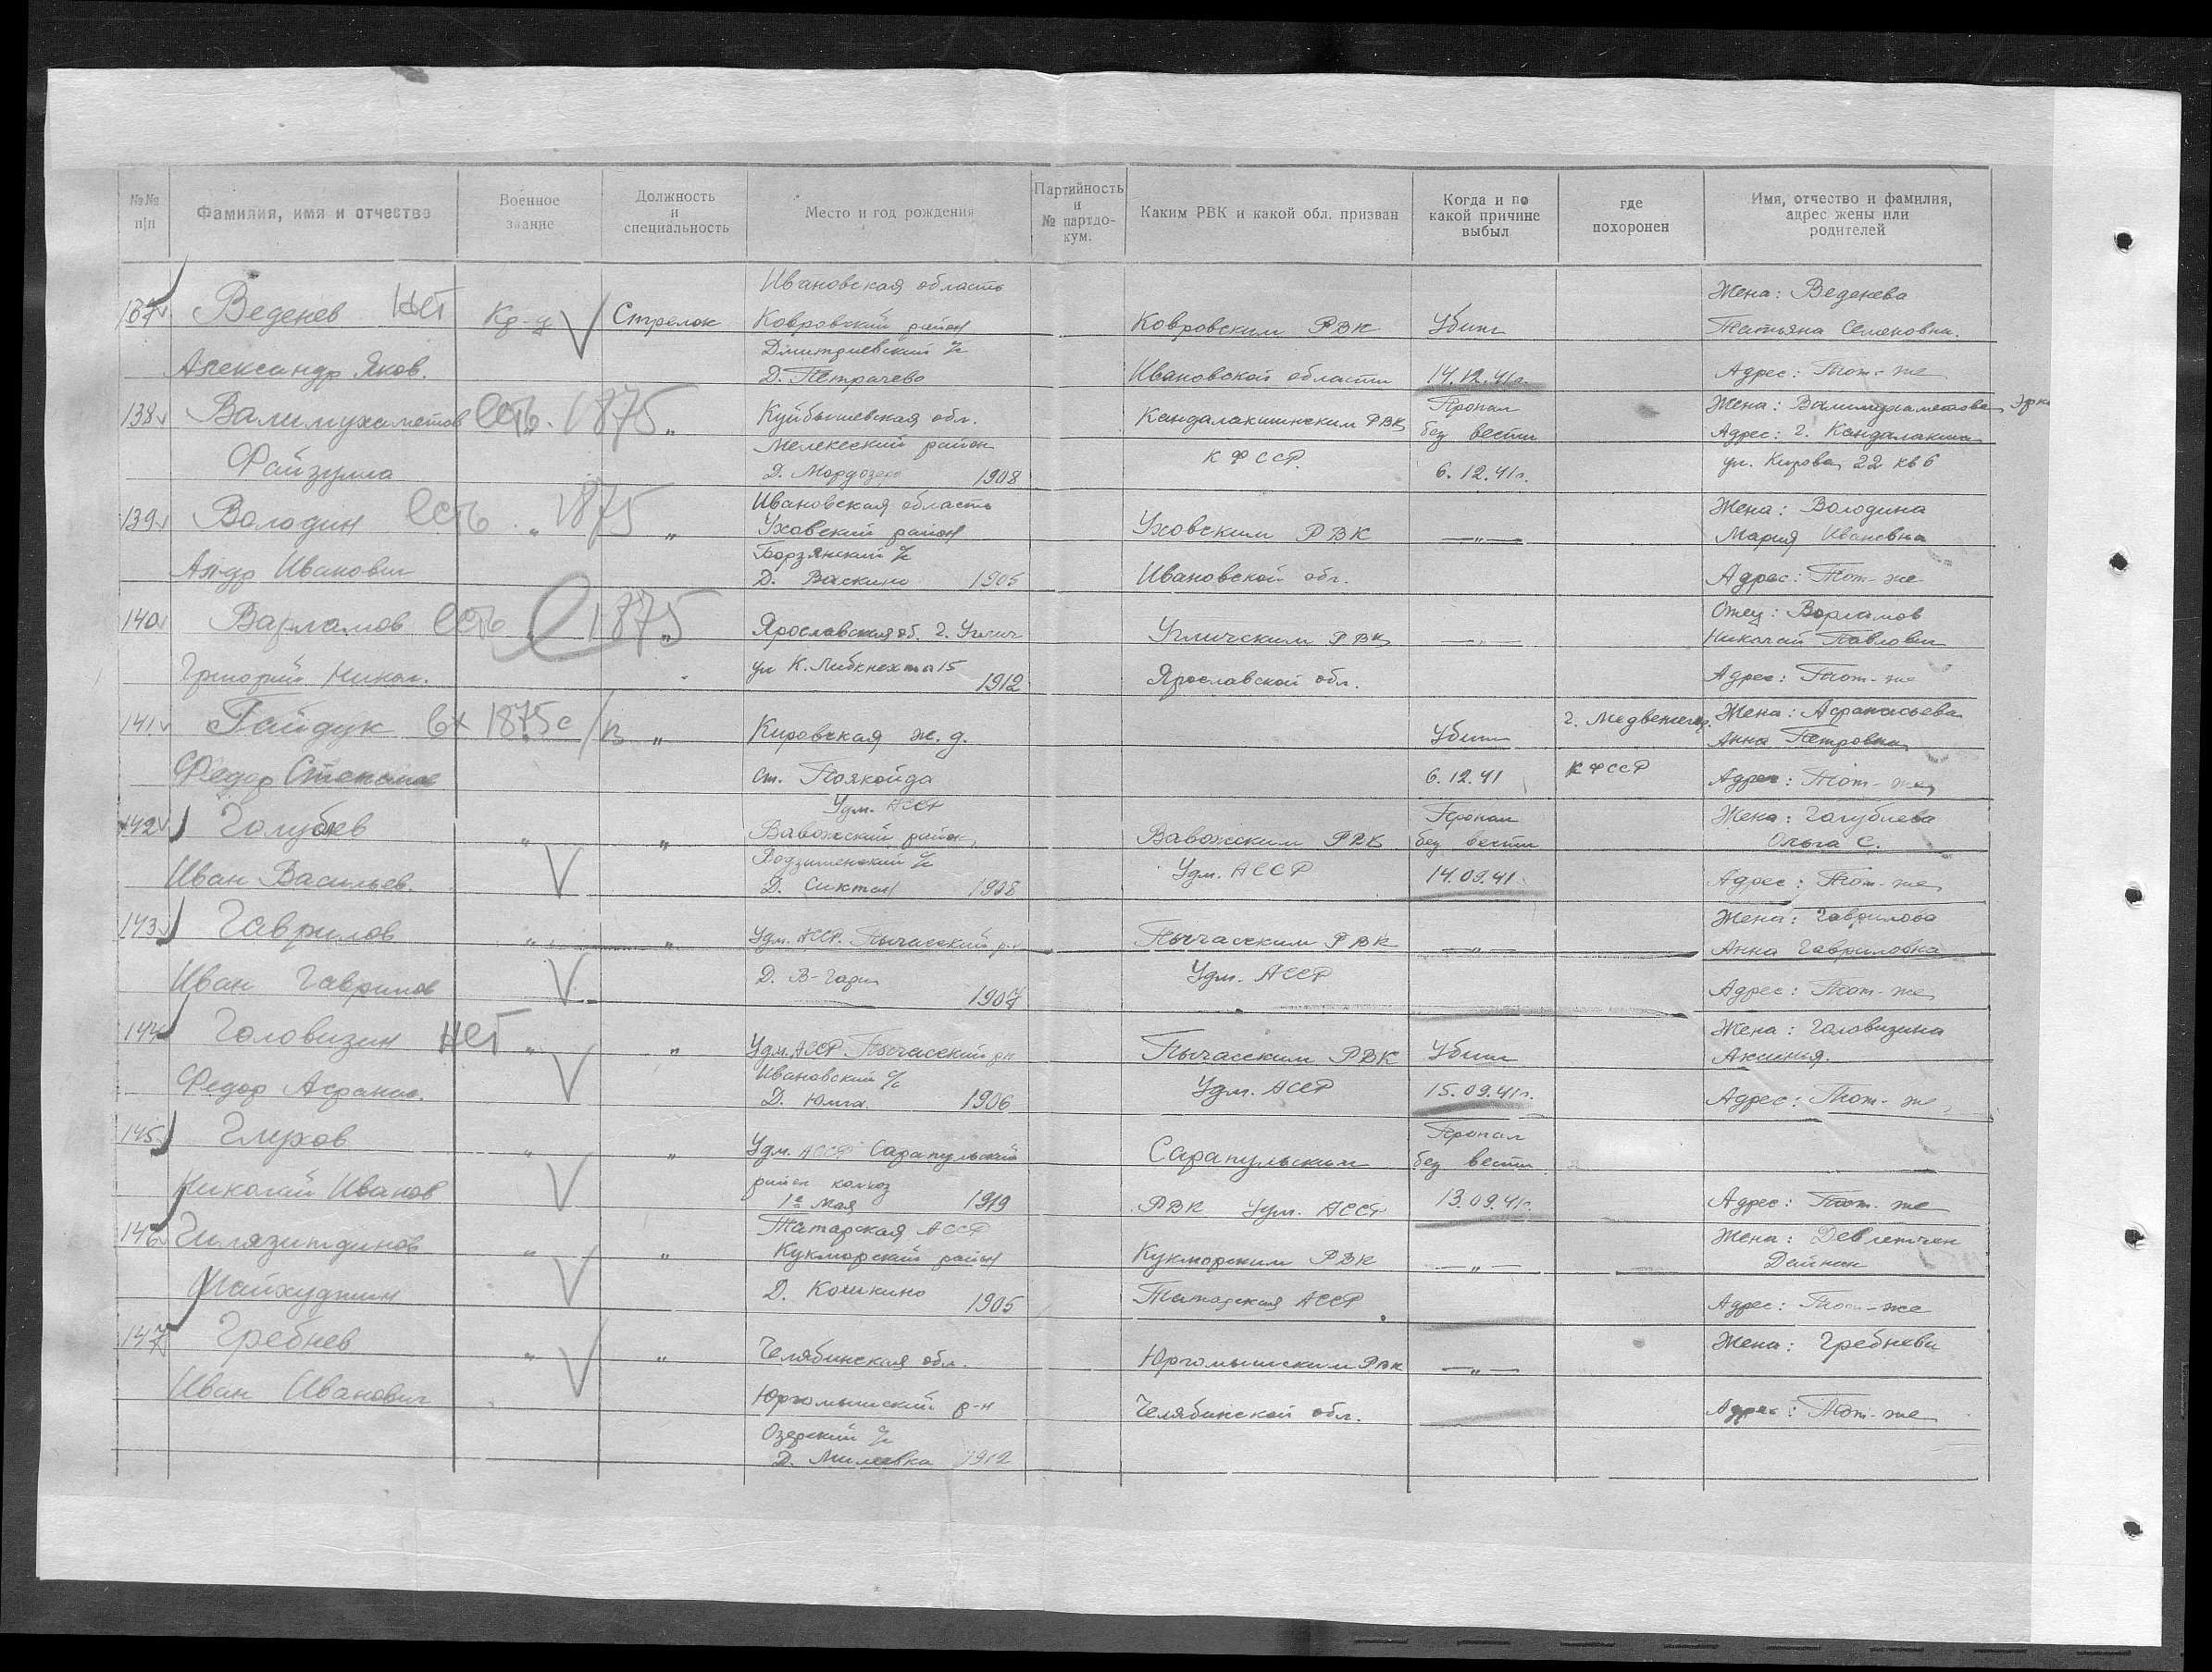 №№ п/п Фамилия, имя и отчество Военное звание Должность и специальность Место и год рождения Партийность и № партдокум. Каким РВК и какой обл. призван Когда и по какой причине выбыл где похоронен Имя, отчество и фамилия, адрес жены или родителей
Ивановская область Жена: Веденева
137 Веденев Нет Кр-ц Стрелок Ковровский район Ковровским РВК Убит Татьяна Семеновна.
Дмитриевский с/с
Александр Яков. Д. Петрачево Ивановской области 14.12.41г. Адрес: Тот-же
138 Валимухаметов Есть. 1875 " Куйбышевская обл. Кандалакшинским РВК Пропал Жена: Валимухаметова
Мелекеский район без вести Адрес: г. Кандалакша
Файзулла Д. Мордозеро 1908 КФССР. 6.12.41г. ул. Кирова 22 кв 6
Ивановская область Жена: Володина
139 Володин Есть " 1875 " Уховский район Уховским РВК —"— Мария Ивановна
Борзянский с/с
Ал-др Иванович Д. Васкино 1905 Ивановской обл. Адрес: Тот-же
Отец: Варламов
140 Варламов Есть 1875 " Ярославская об. г. Углич Угличским РВК —"— Николай Павлович
Григорий Никол. ул К. Либкнехта 15 1912 Ярославской обл. Адрес: Тот-же
141 Гайдук Вх 1875с " Кировская ж. д. Убит г. Медвежьег. Жена: Афанасьева
Анна Петровна
Федор Степанов ст. Лоякойда 6.12.41 КФССР Адрес: Тот-же
Удм. АССР Пропал Жена: Голублева
142 Голублев " " Вавожский район Вавожским РВК без вести Ольга С.
Иван Васильев. Д. Сиктан 1908 Удм. АССР 14.09.41 Адрес: Тот-же
Жена: Гаврилова
143 Гаврилов " " Удм. АССР. Пычасский р-н Пычасским РВК —"— Анна Гавриловна
Иван Гаврилов Д. В-Гари 1907 Удм. АССР Адрес: Тот-же
Жена: Головизина
144 Головизин Нет " " Удм. АССР Пычасский рн Пычасским РВК Убит Аксинья.
Ивановский с/с
Федор Афанас. Д. Юмга 1906 Удм. АССР 15.09.41г. Адрес: Тот-же
145 Глухов " " Удм. АССР Сарапульский Сарапульским Пропал без вести
район колхоз
Николай Иванов 1е мая 1919 РВК Удм. АССР 13.09.41г. Адрес: Тот-же
Татарская АССР
146 Гилязитдинов " " Кукморский район Кукморским РВК —"— Жена: Девлетчен
Шайхудтин Д. Кошкино 1905 Татарская АССР Адрес: Тот-же
147 Гребнев " " Челябинская обл. Юргомышским РВК —"— Жена: Гребнева
Иван Иванович Юргомышский р-н Челябинской обл. Адрес: Тот-же
Озерский с/с
Д. Милавка 1912